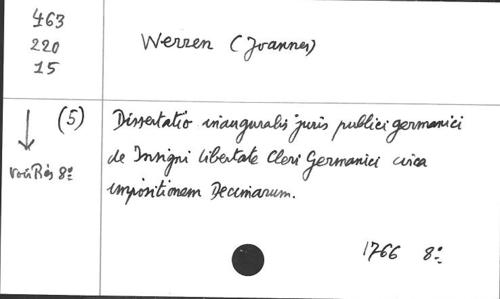 463
220
15
Werren (Joannes)
(5)
Dissertatio inauguralis juris publici germanici
de Insigni libertate Cleri Germanici circa
impositionem Decimarum.
voir Rés 8º
1766 8º